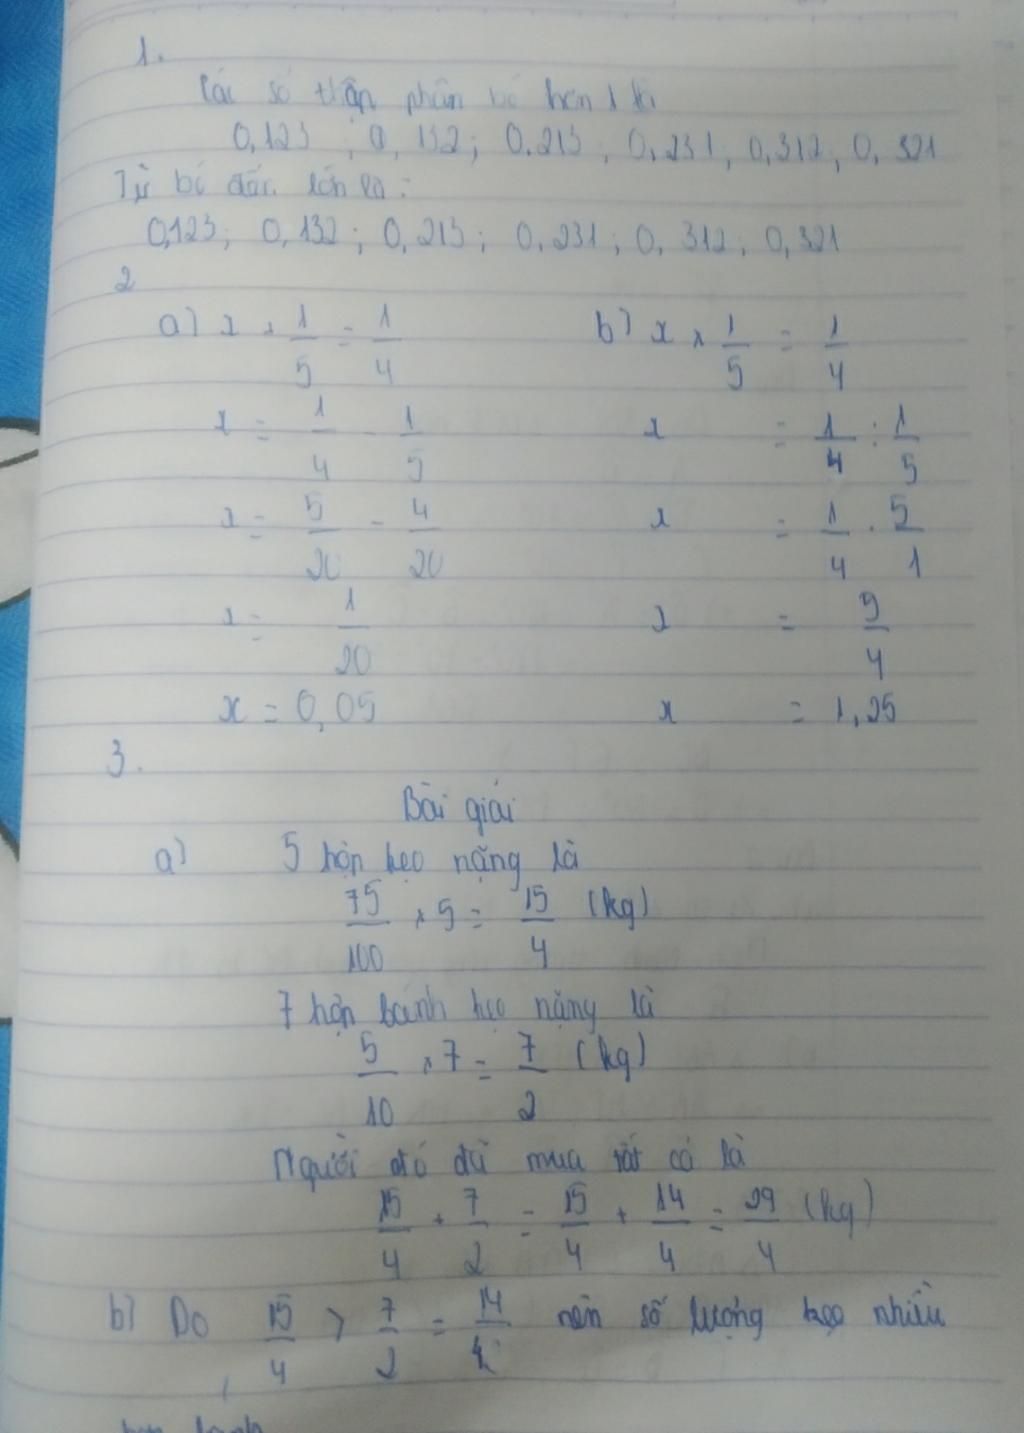 1.
Các số thập phân bé hơn 1 là
0,123 ; 0,132; 0,213; 0,231; 0,312; 0,321
Từ bé đến lớn là:
0,123; 0,132; 0,213; 0,231; 0, 312; 0,321
2
a) x + 1/5 = 1/4
x = 1/4 - 1/5
x = 5/20 - 4/20
x = 1/20
x = 0,05
b) x × 1/5 = 1/4
x = 1/4 : 1/5
x = 1/4 . 5/1
x = 5/4
x = 1,25
3.
Bài giải
a) 5 hộp kẹo nặng là
75/100 × 5 = 15/4 (kg)
7 hộp bánh kẹo nặng là
5/10 × 7 = 7/2 (kg)
Người đó đã mua tất cả là
15/4 + 7/2 = 15/4 + 14/4 = 29/4 (kg)
b) Do 15/4 > 7/2 = 14/4 nên số lượng kẹo nhiều
hơn bánh